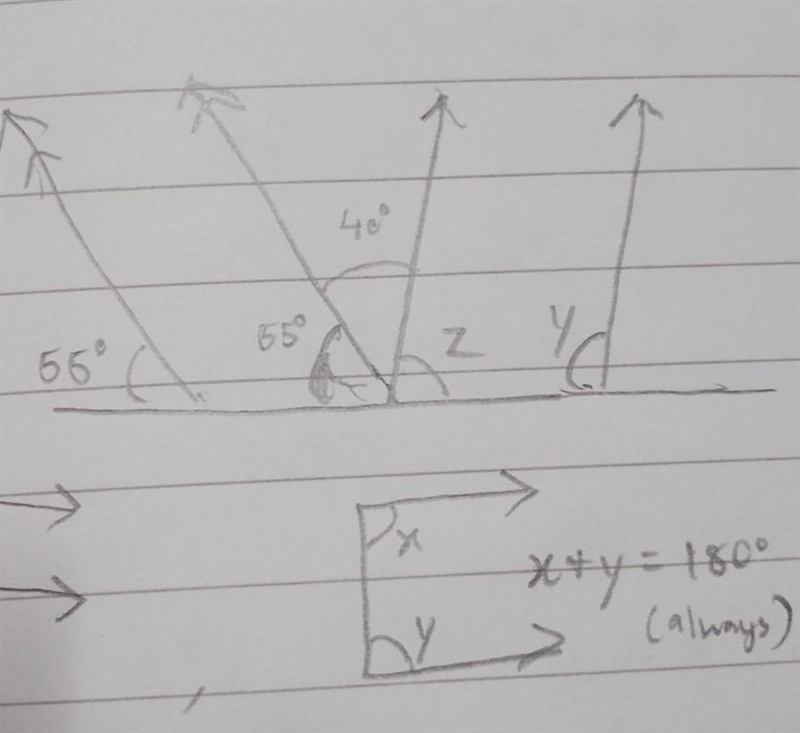 40°
55° 55° Z Y
x
x+y=180°
y (always)